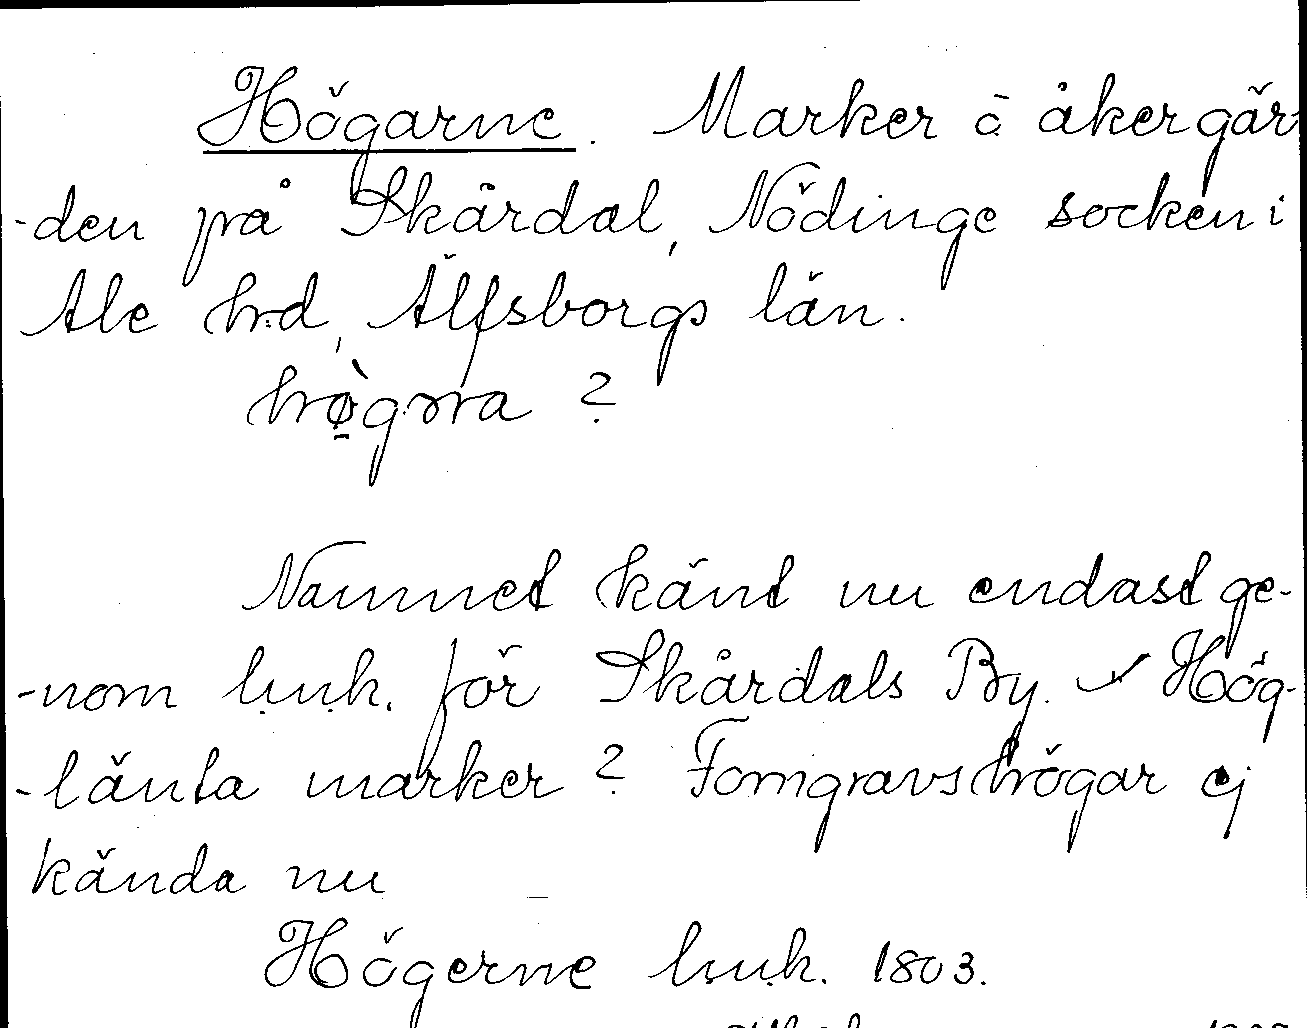 Högarne. Marker å åkergär-
-den på Skårdal, Nödinge socken i
Ale hd, Älfsborgs län.
hø̀gɔra ?
Namnet känt nu endast ge-
-nom l.u.k. för Skårdals By. Hög-
-länta marker ? Forngravshögar ej
kända nu
Högerne l.u.k. 1803.